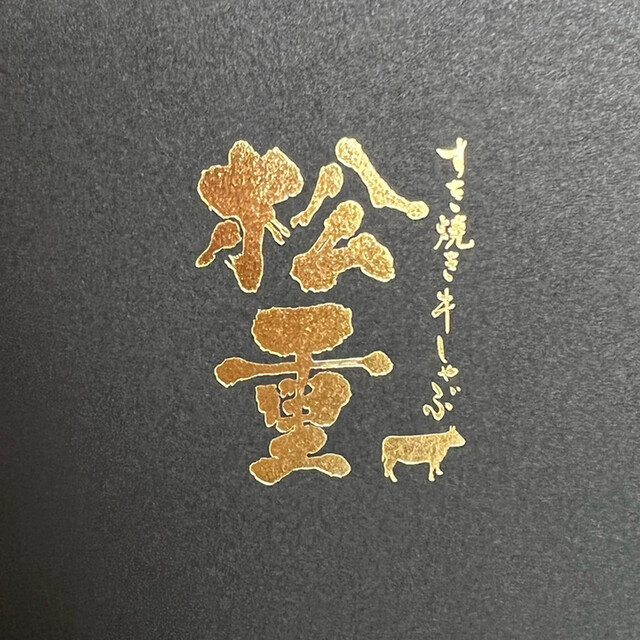 すき焼き牛しゃぶ
松重